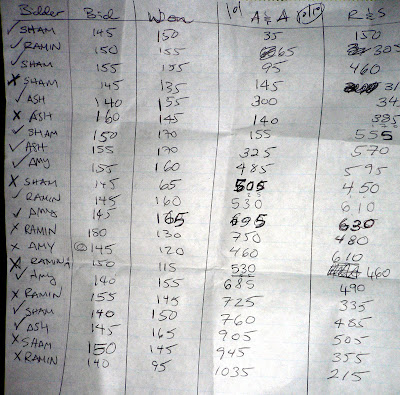 Bidder Bid Won 101 A & A R & S
✓ SHAM 145 150 35 150
✓ RAMIN 150 155 65 305
✓ SHAM 155 155 95 460
X SHAM 145 135 145 31
✓ ASH 140 155 300 34
X ASH 160 145 140 385
✓ SHAM 150 170 155 555
✓ ASH 155 170 325 570
✓ AMY 155 160 485 595
X SHAM 145 65 505 450
✓ RAMIN 145 160 530 610
✓ AMY 145 165 695 630
X RAMIN 180 130 750 480
X AMY 145 120 460 610
X RAMIN 150 115 530 460
✓ AMY 140 155 685 490
X RAMIN 155 145 725 335
✓ SHAM 140 150 760 485
✓ ASH 145 165 905 505
X SHAM 150 145 945 355
X RAMIN 140 95 1035 215